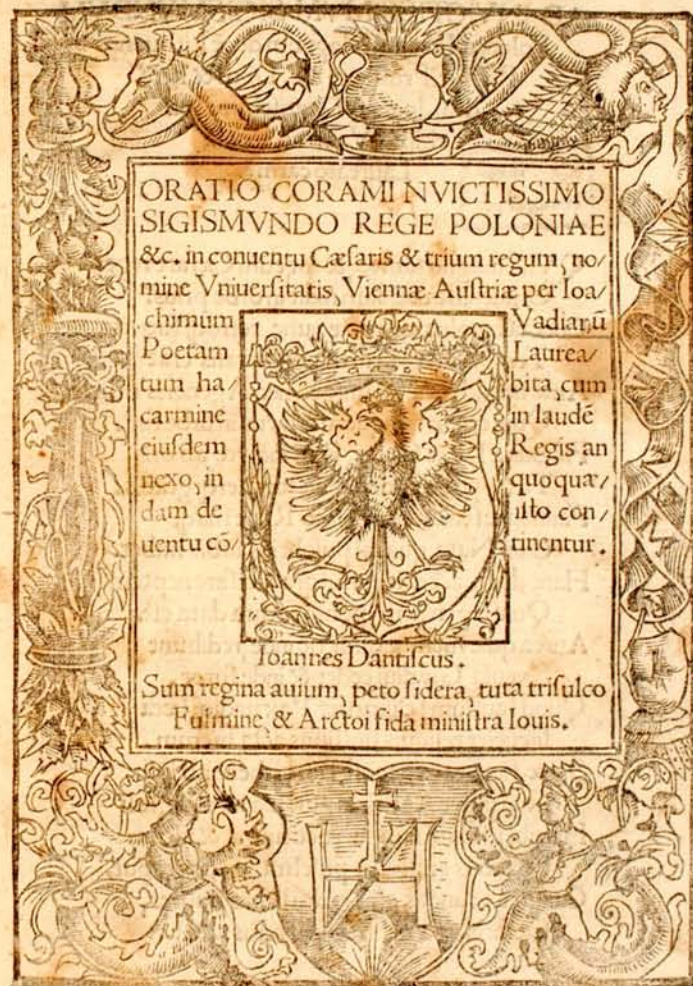 ORATIO CORAMI NVICTISSIMO
SIGISMVNDO REGE POLONIAE
&c. in conuentu Cæsaris & trium regum, no/
mine Vniuersitatis, Viennæ Austriæ per Ioa/
chimum Vadianū
Poetam Laurea/
tum ha/ bita, cum
carmine in laudē
eiusdem Regis an
nexo, in quo quæ/
dam de isto con/
uentu cō/ tinentur.
Ioannes Dantiscus.
Sum regina auium, peto sidera, tuta trisulco
Fulmine, & Arctoi fida ministra Iouis.